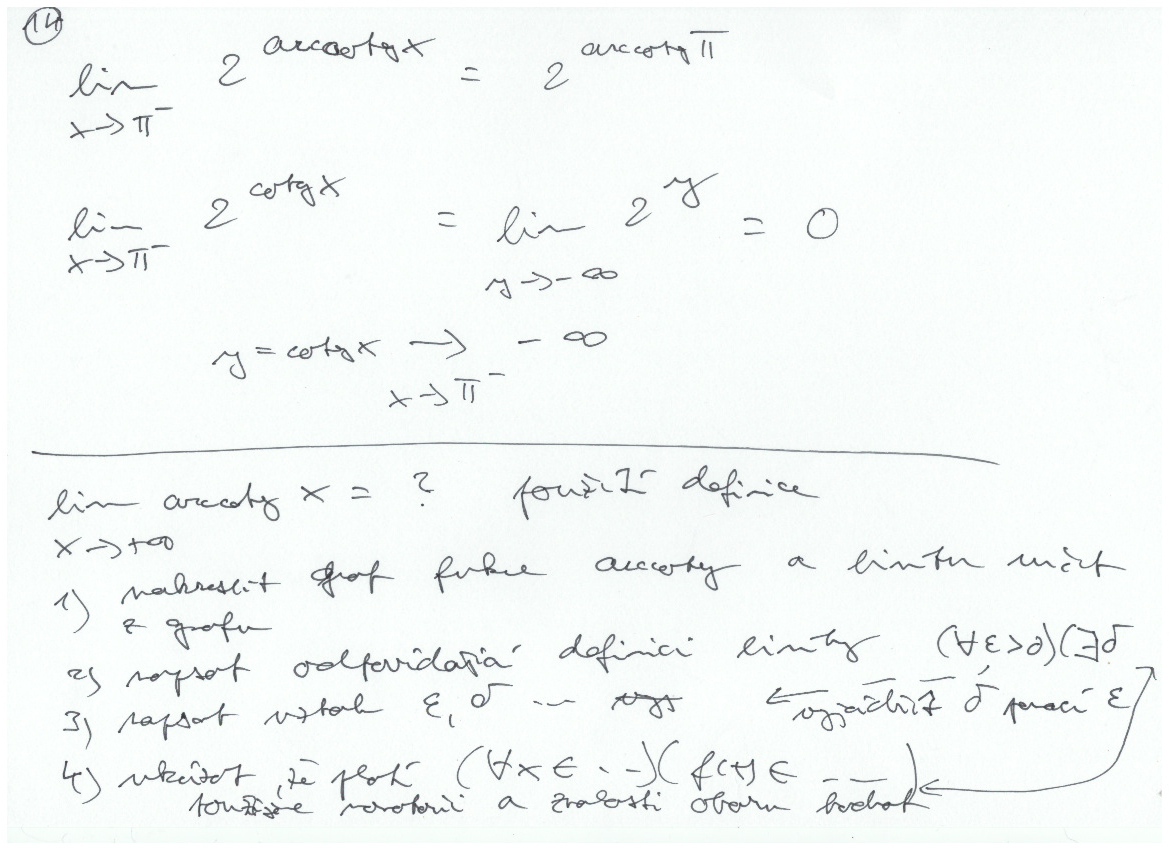 14
lim 2^{arccotg x} = 2^{arccotg π}
x→π⁻
lim 2^{cotg x} = lim 2^y = 0
x→π⁻ y→-∞
y = cotg x → -∞
x→π⁻
lim arccotg x = ? použití definice
x→+∞
1) nakreslit graf funkce arccotg a limitu určit
z grafu
2) napsat odpovídající definici limity (∀ε>0)(∃δ
3) napsat vztah ε, δ ... ← vyjádřit δ pomocí ε
4) ukázat, že platí (∀x∈ ...)(f(x)∈ ...)
a znalosti oboru hodnot